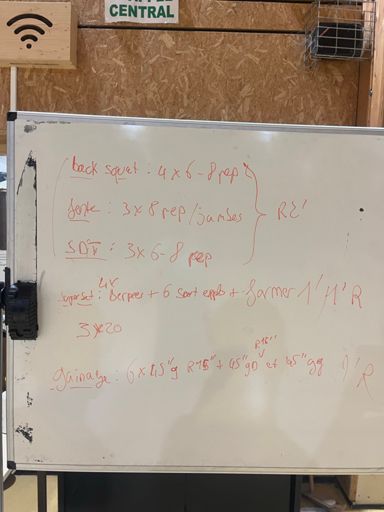 CENTRAL
back squat : 4 x 6-8 rep
fente : 3 x 8 rep/jambes
R2'
SDT : 3 x 6-8 rep
4x
superset : Burpees + 6 saut + farmer 1'/1' R
3x20
R15''
gainage : 6 x 45'' g R15'' + 45'' gD et 45'' gg 1' R